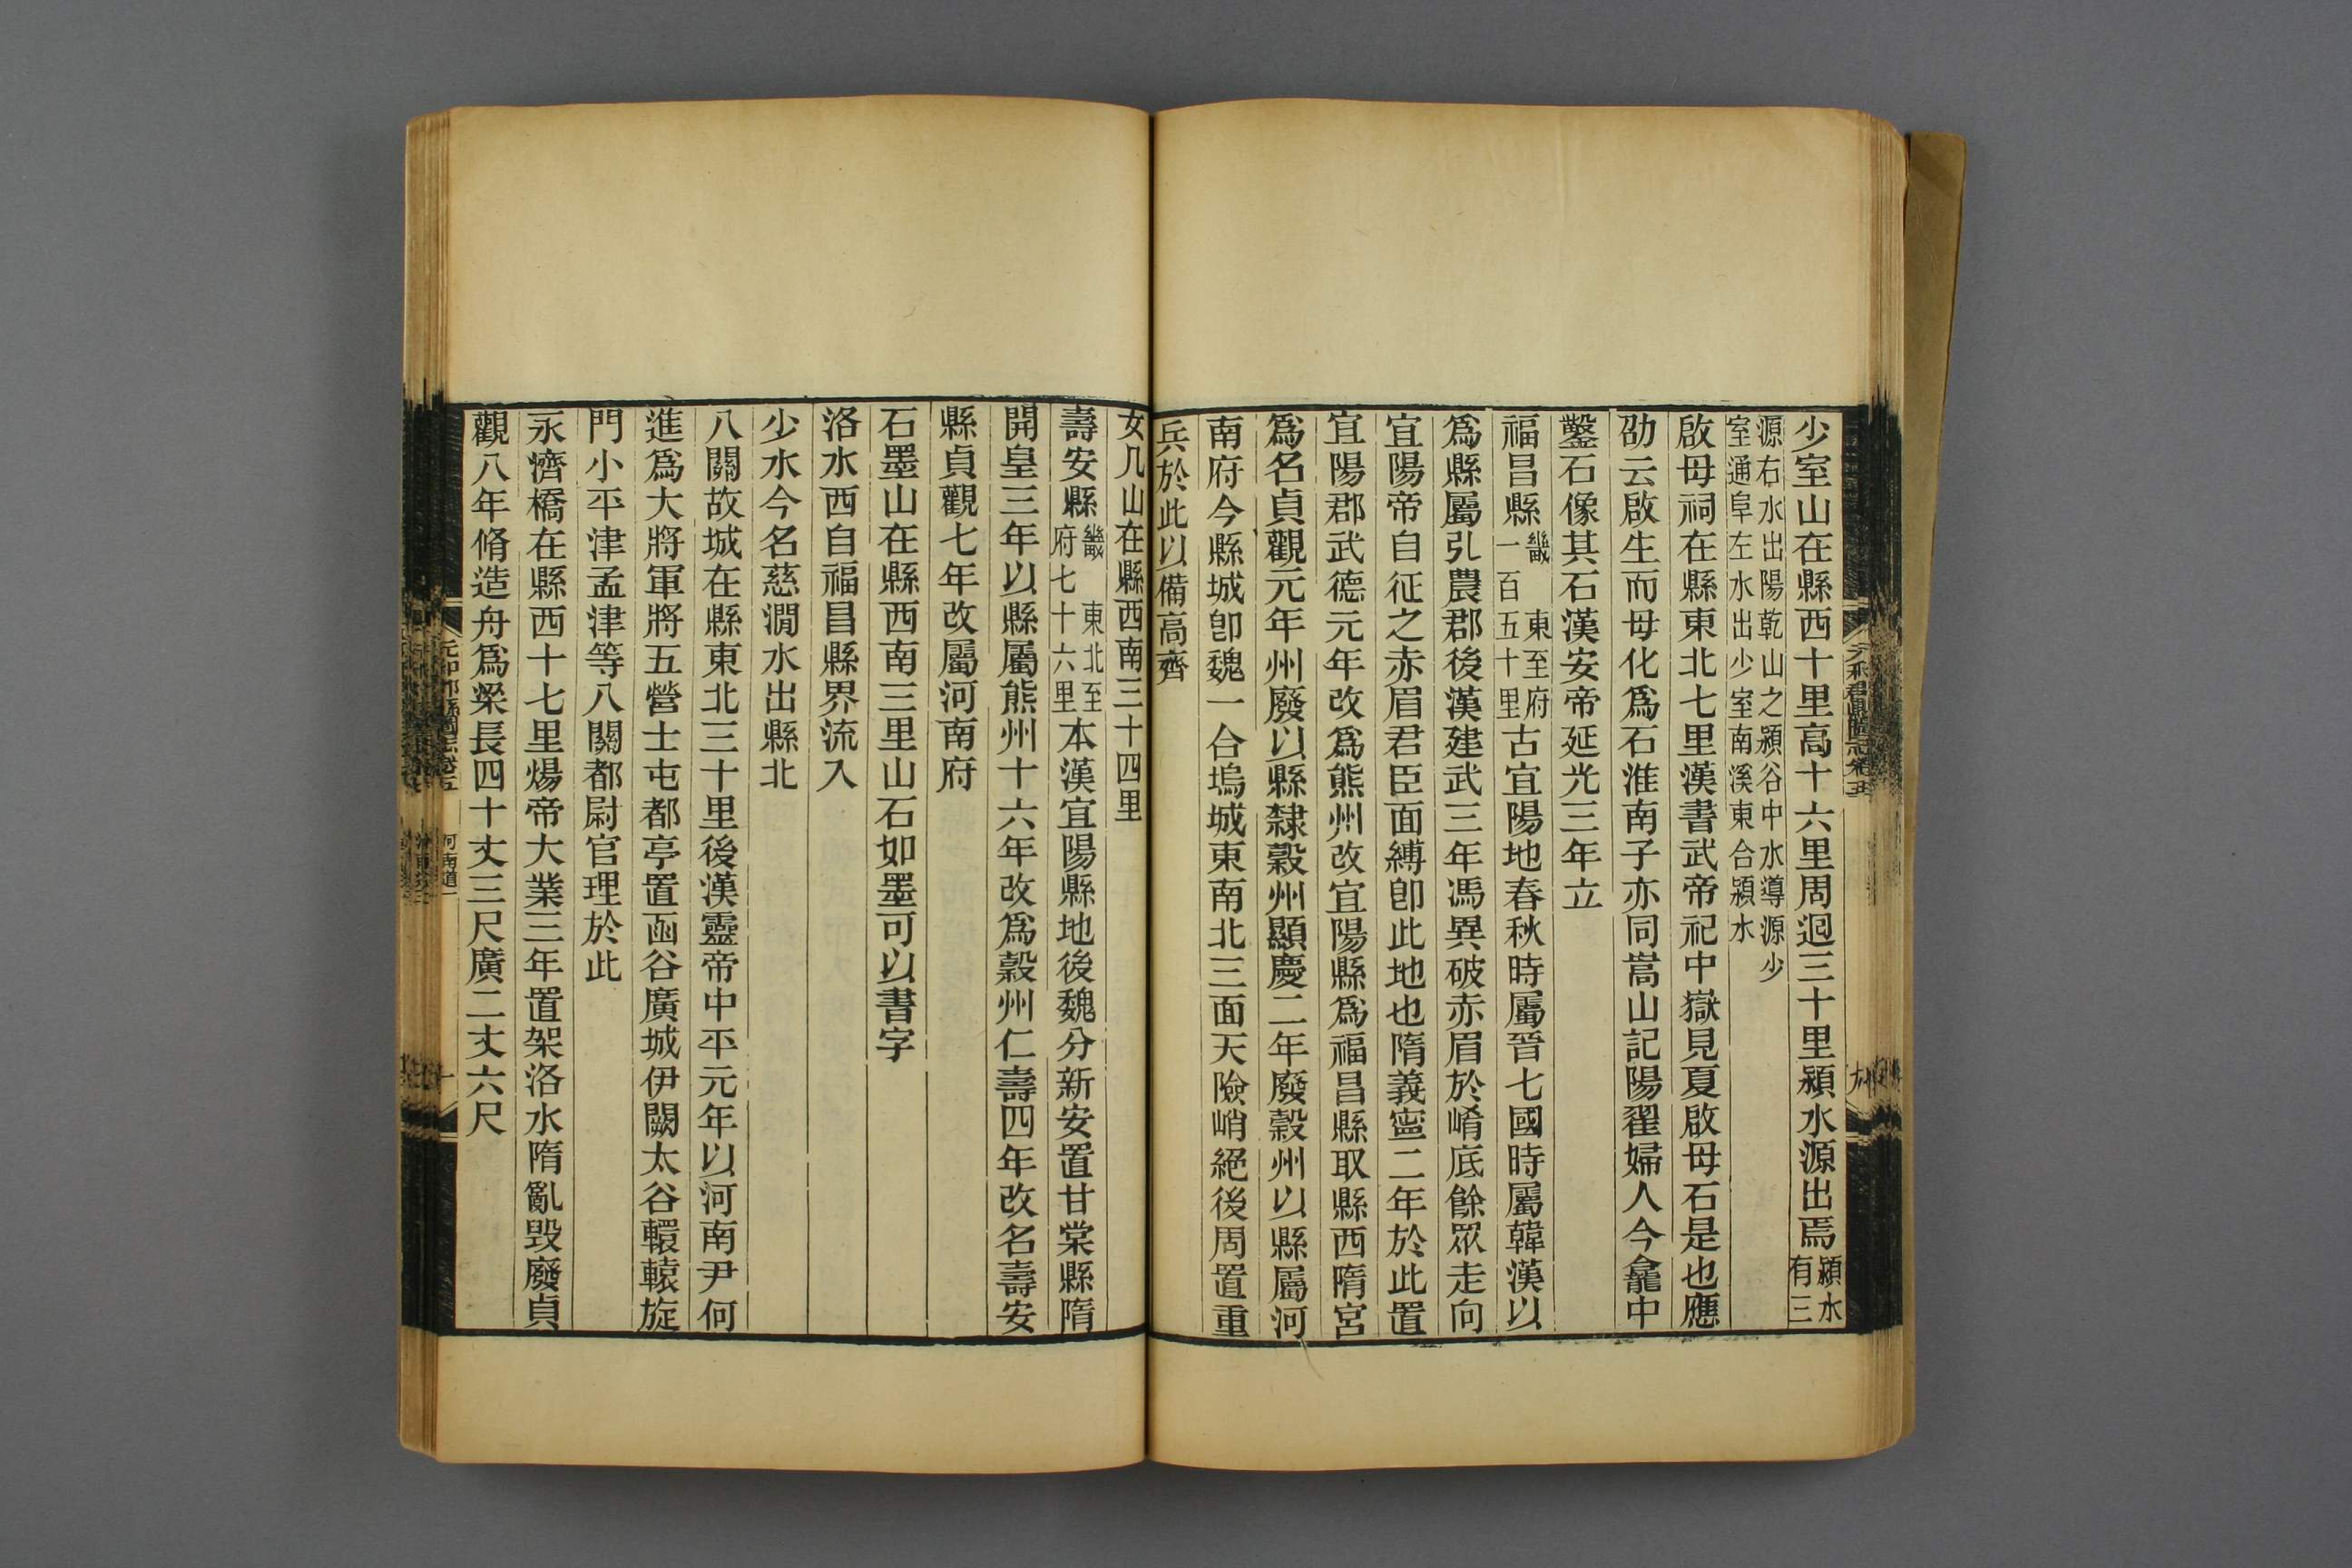 少室山在縣西十里高十六里周迴三十里潁水源出焉潁水有三
源右水出陽乾山之潁谷中水導源少室通阜左水出少室南溪東合潁水
啟母祠在縣東北七里漢書武帝祀中嶽見夏啟母石是也應
劭云啟生而母化爲石淮南子亦同嵩山記陽翟婦人今龕中
鑿石像其石漢安帝延光三年立
福昌縣畿東至府一百五十里古宜陽地春秋時屬晉七國時屬韓漢以
爲縣屬弘農郡後漢建武三年馮異破赤眉於崤底餘眾走向
宜陽帝自征之赤眉君臣面縛卽此地也隋義寧二年於此置
宜陽郡武德元年改爲熊州改宜陽縣爲福昌縣取縣西隋宮
爲名貞觀元年州廢以縣隸穀州顯慶二年廢穀州以縣屬河
南府今縣城卽魏一合塢城東南北三面天險峭絕後周置重
兵於此以備高齊
女几山在縣西南三十四里
壽安縣畿東北至府七十六里本漢宜陽縣地後魏分新安置甘棠縣隋
開皇三年以縣屬熊州十六年改爲穀州仁壽四年改名壽安
縣貞觀七年改屬河南府
石墨山在縣西南三里山石如墨可以書字
洛水西自福昌縣界流入
少水今名慈澗水出縣北
八關故城在縣東北三十里後漢靈帝中平元年以河南尹何
進爲大將軍將五營士屯都亭置函谷廣城伊闕太谷轘轅旋
門小平津孟津等八關都尉官理於此
永濟橋在縣西十七里煬帝大業三年置架洛水隋亂毀廢貞
觀八年脩造舟爲梁長四十丈三尺廣二丈六尺